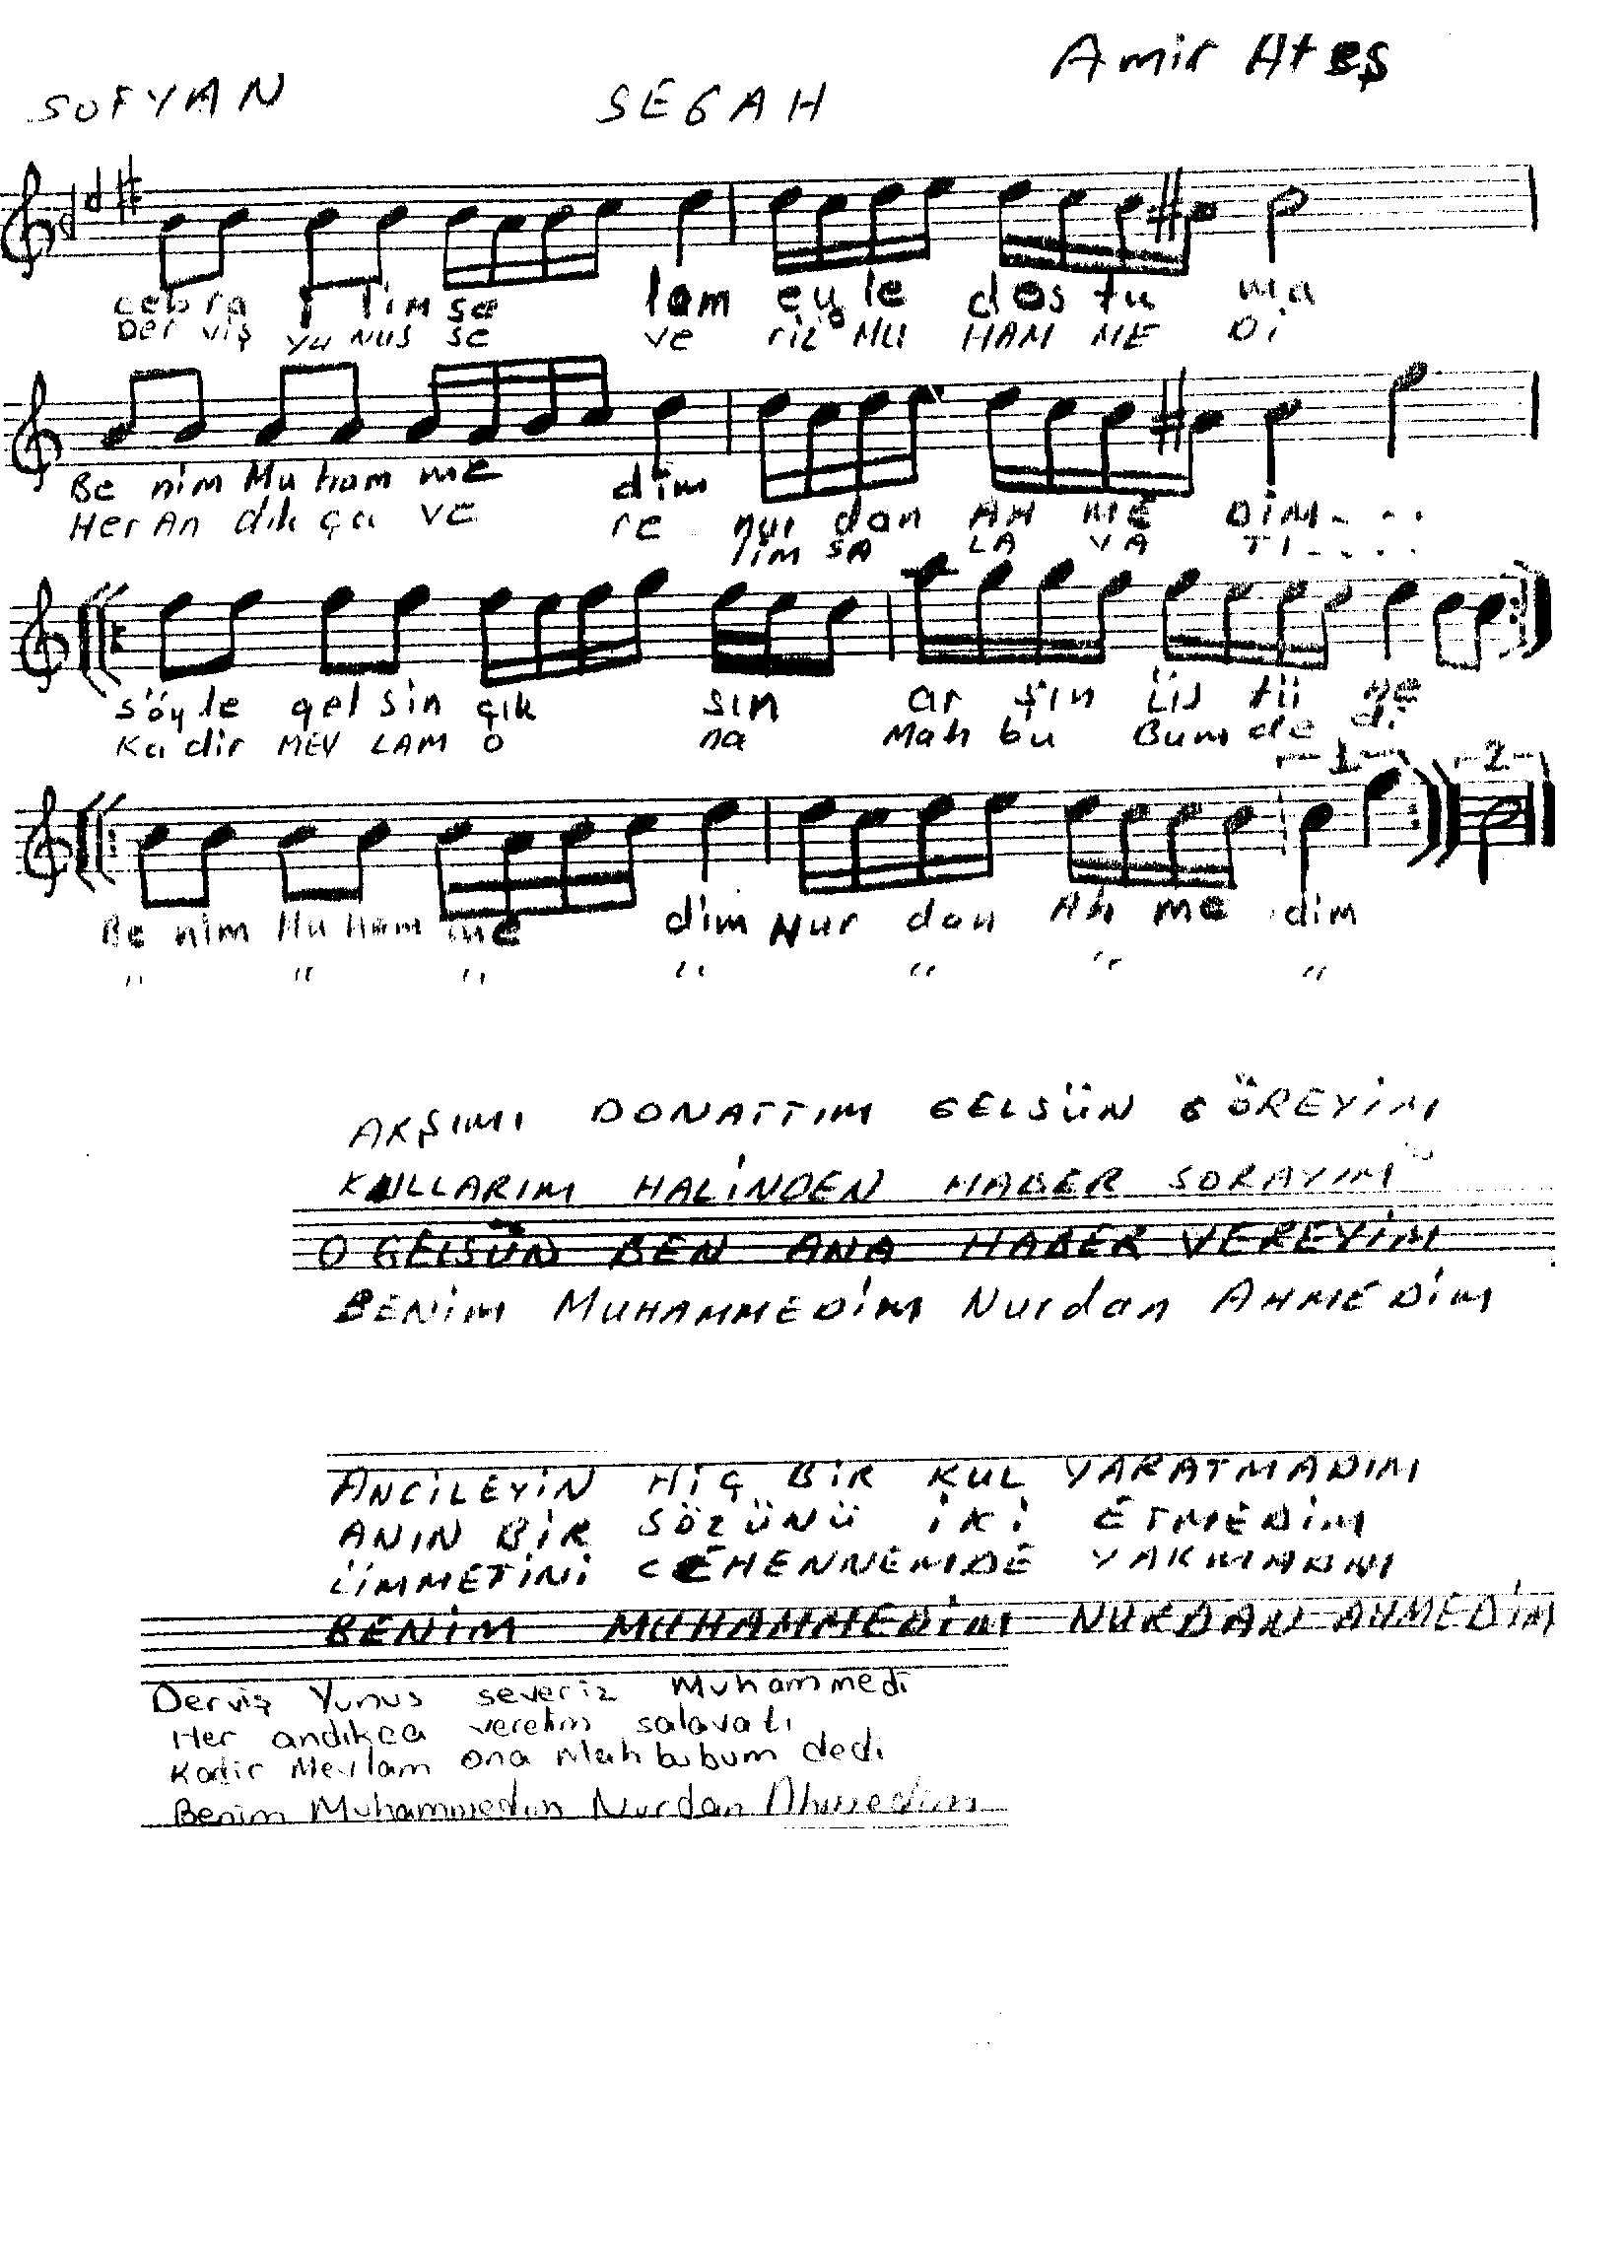 Amir Ateş
SOFYAN SEGAH
cebra i lim se lam eyle dos tu ma
Der viş yu nus se ve riz MU HAM ME Di
Be nim Mu ham me dim nur dan AH ME DİM- . . .
Her An dık ça ve re lim SA LA VA TI- . . . .
söyle gel sin çık sın ar şın üs tü ne
Ka dir MEV LAM o na Mah bu Bum de di
1 2
Be nim Mu ham me dim Nur dan Ah me dim
" " " " " " "
ARŞIMI DONATTIM GELSÜN GÖREYİM
KULLARIM HALİNDEN HABER SORAYIM
O GELSÜN BEN ANA HABER VEREYİM
BENİM MUHAMMEDİM Nurdan AHMEDİM
ANCİLEYİN HİÇ BİR KUL YARATMADIM
ANIN BİR SÖZÜNÜ İKİ ETMEDİM
ÜMMETİNİ CEHENNEMDE YAKMADIM
BENİM MUHAMMEDİM NURDAN AHMEDİM
Derviş Yunus severiz Muhammedi
Her andıkca verelim salavatı
Kadir Mevlam ona Mahbubum dedi
Benim Muhammedim Nurdan Ahmedim